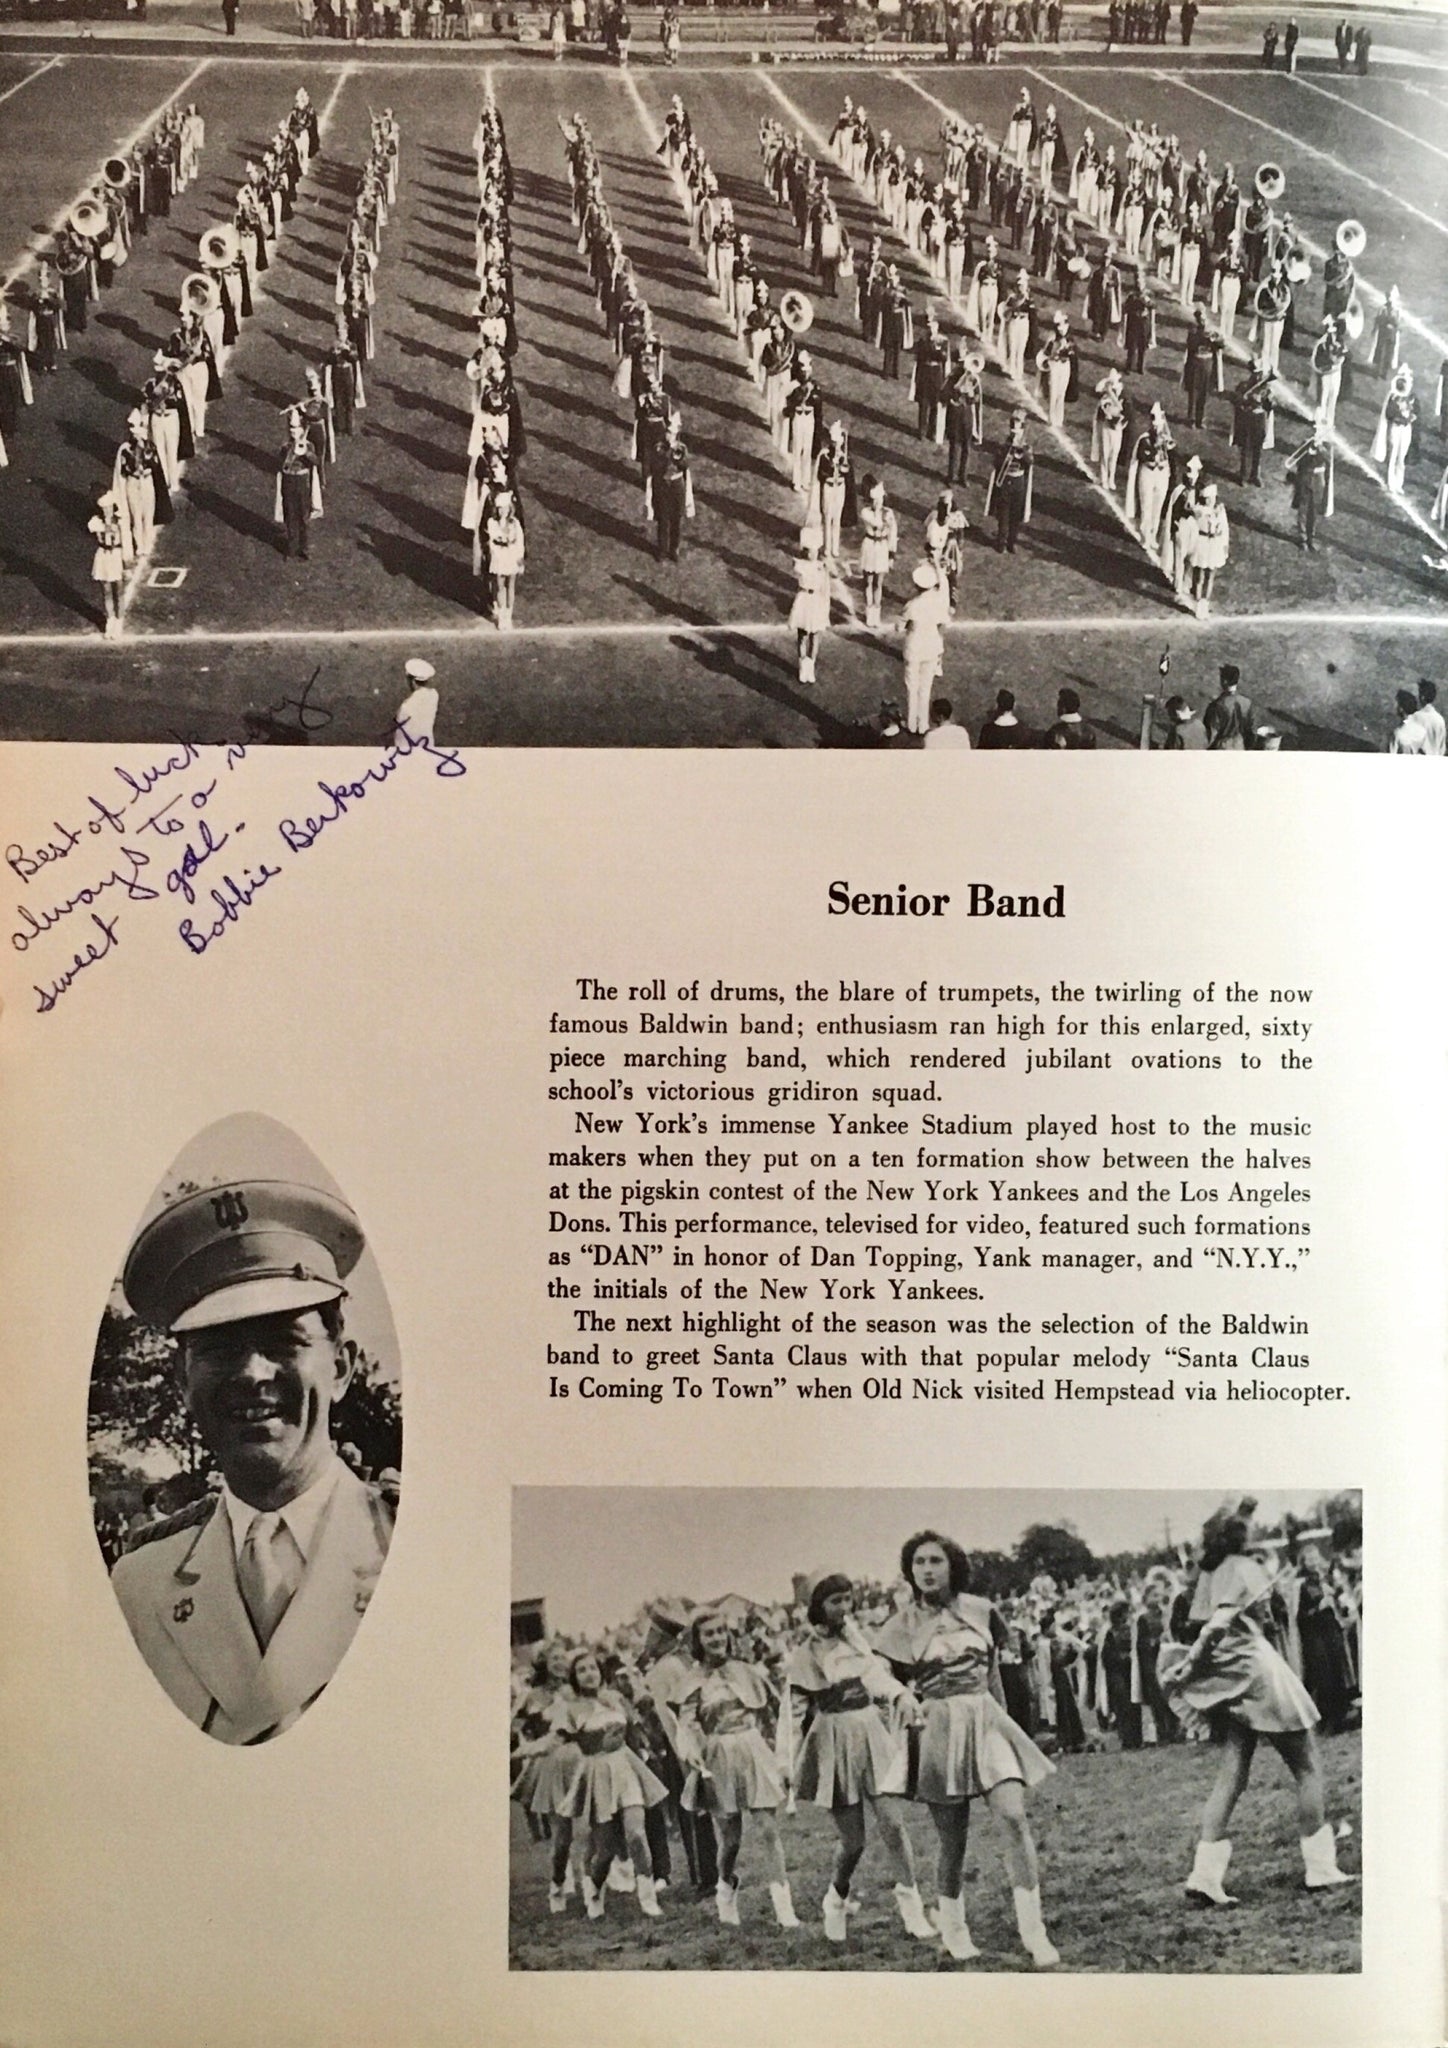 Best of luck
always to a very
sweet gal.
Bobbie Berkowitz
Senior Band
The roll of drums, the blare of trumpets, the twirling of the now
famous Baldwin band; enthusiasm ran high for this enlarged, sixty
piece marching band, which rendered jubilant ovations to the
school's victorious gridiron squad.
New York's immense Yankee Stadium played host to the music
makers when they put on a ten formation show between the halves
at the pigskin contest of the New York Yankees and the Los Angeles
Dons. This performance, televised for video, featured such formations
as "DAN" in honor of Dan Topping, Yank manager, and "N.Y.Y.,"
the initials of the New York Yankees.
The next highlight of the season was the selection of the Baldwin
band to greet Santa Claus with that popular melody "Santa Claus
Is Coming To Town" when Old Nick visited Hempstead via heliocopter.